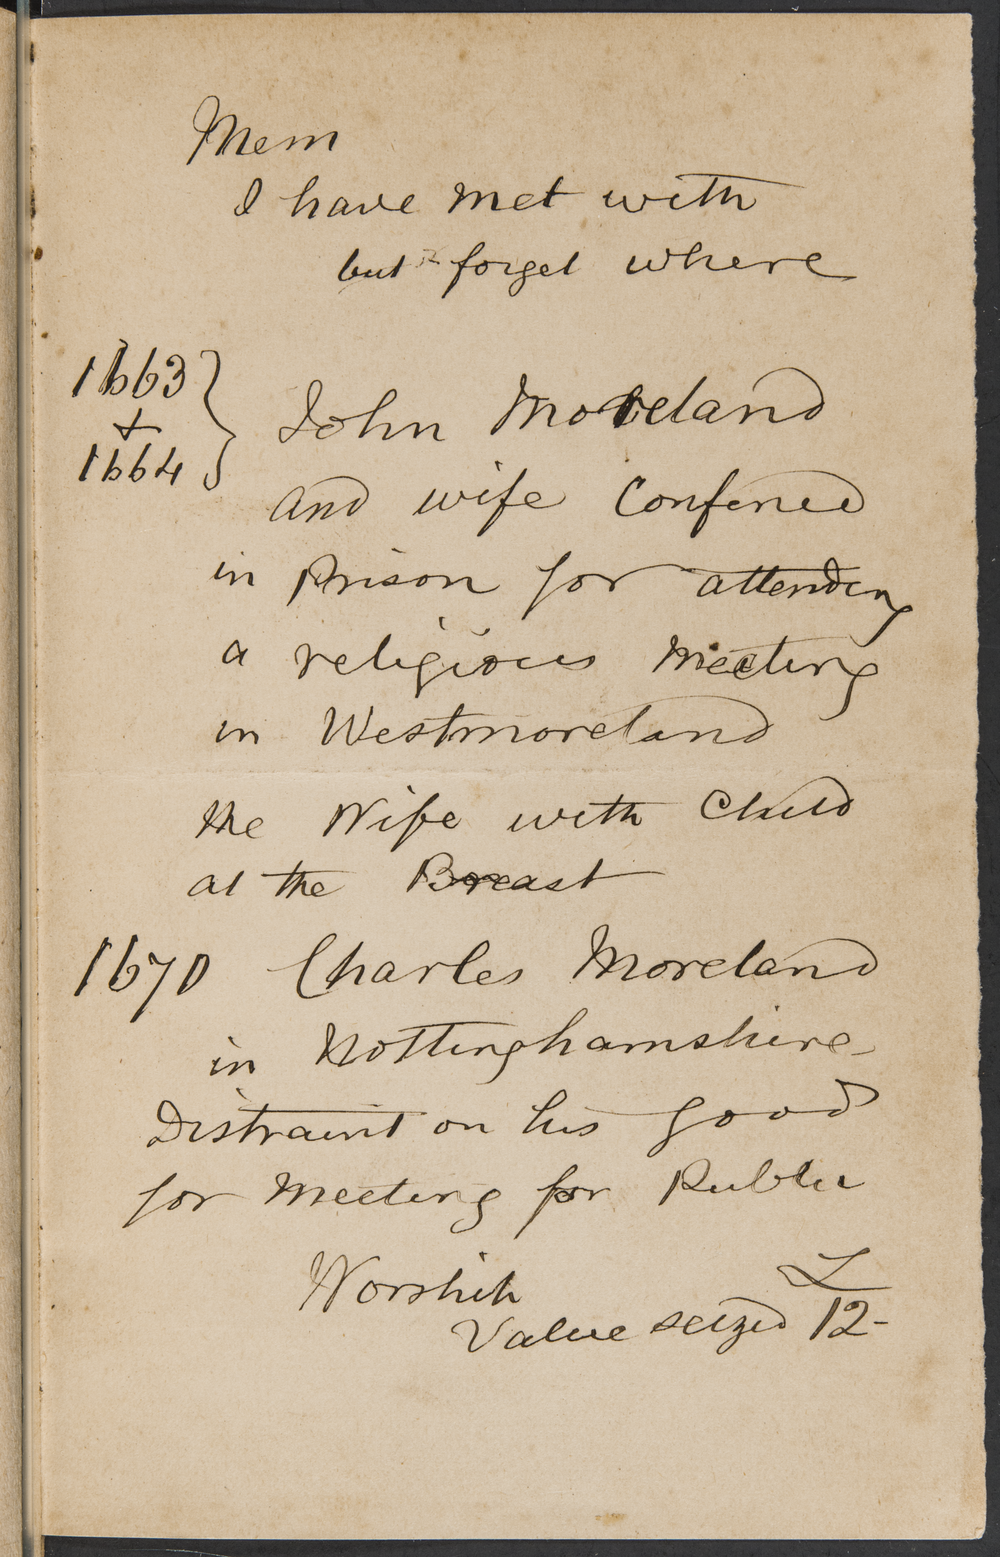 Mem
I have met with
but forget where
1663
&
1664 } John Moreland
and wife Confined
in Prison for attending
a religious Meeting
in Westmoreland
the Wife with Child
at the Breast
1670 Charles Moreland
in Nottinghamshire
Distraint on his good
for Meeting for Public
Worship
£
Value seized 12-